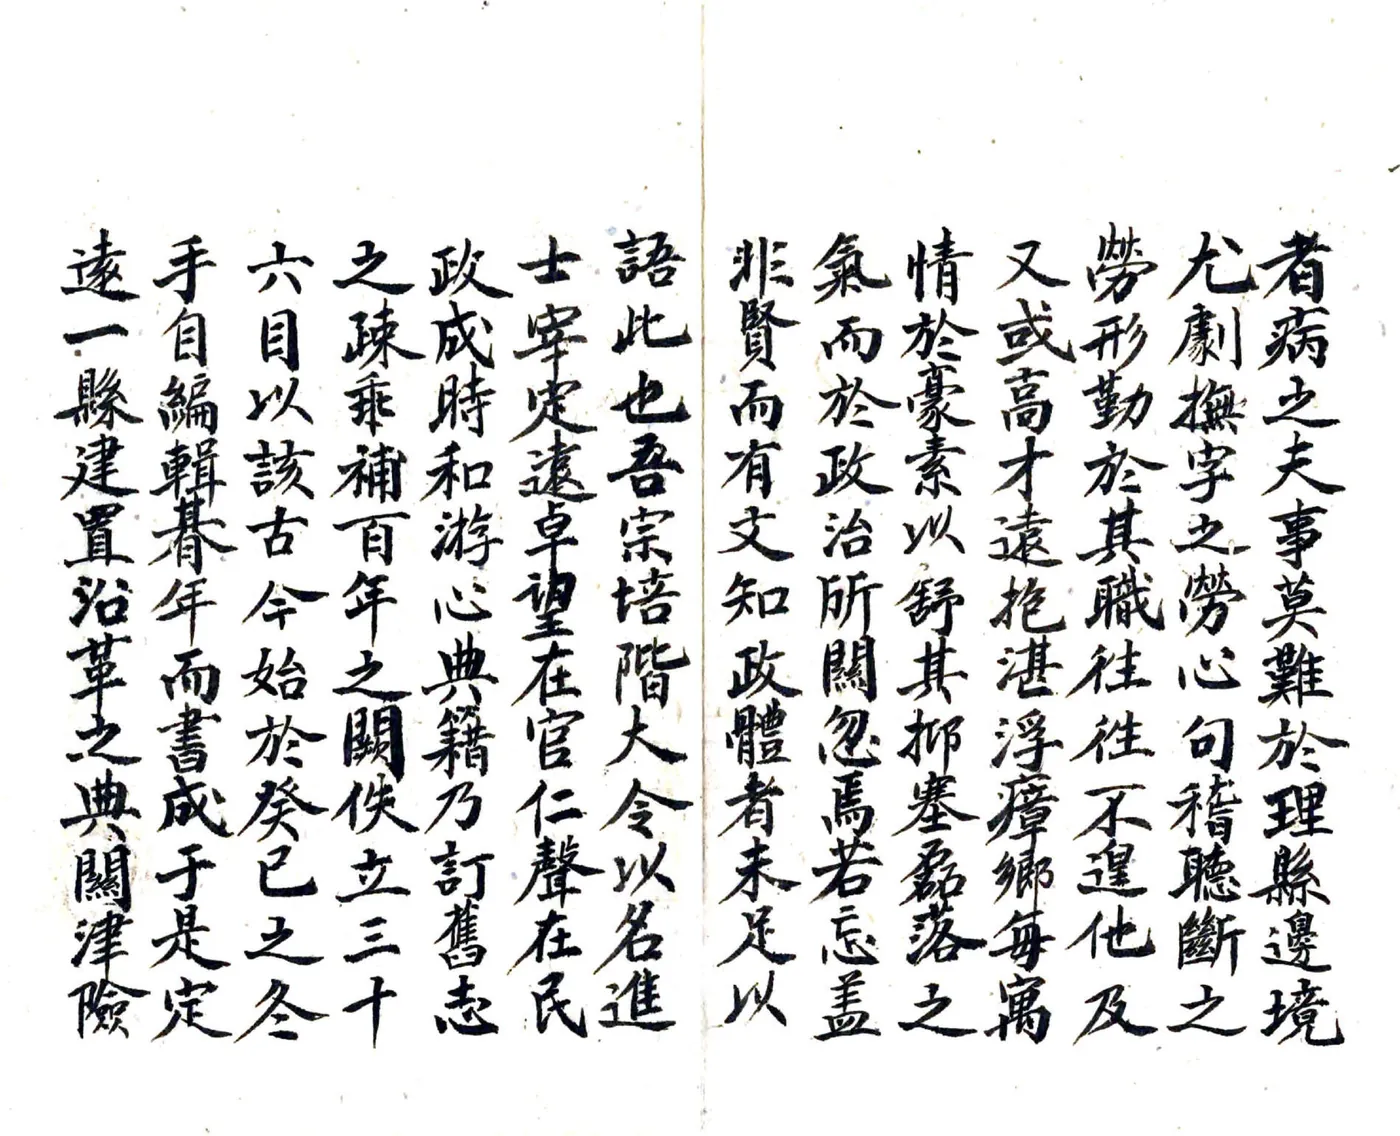 者病之夫事莫難於理縣邊境
尤劇撫字之勞心句稽聽斷之
勞形勤於其職徃徃不遑他及
又或高才遠抱湛浮瘴鄉每寓
情於豪素以舒其抑塞磊落之
氣而於政治所關忽焉若忘盖
非賢而有文知政體者未足以
語此也吾宗培階大令以名進
士宰定遠卓望在官仁聲在民
政成時和游心典籍乃訂舊志
之疎乖補百年之闕佚立三十
六目以該古今始於癸巳之冬
手自編輯朞年而書成于是定
遠一縣建置沿革之典關津險